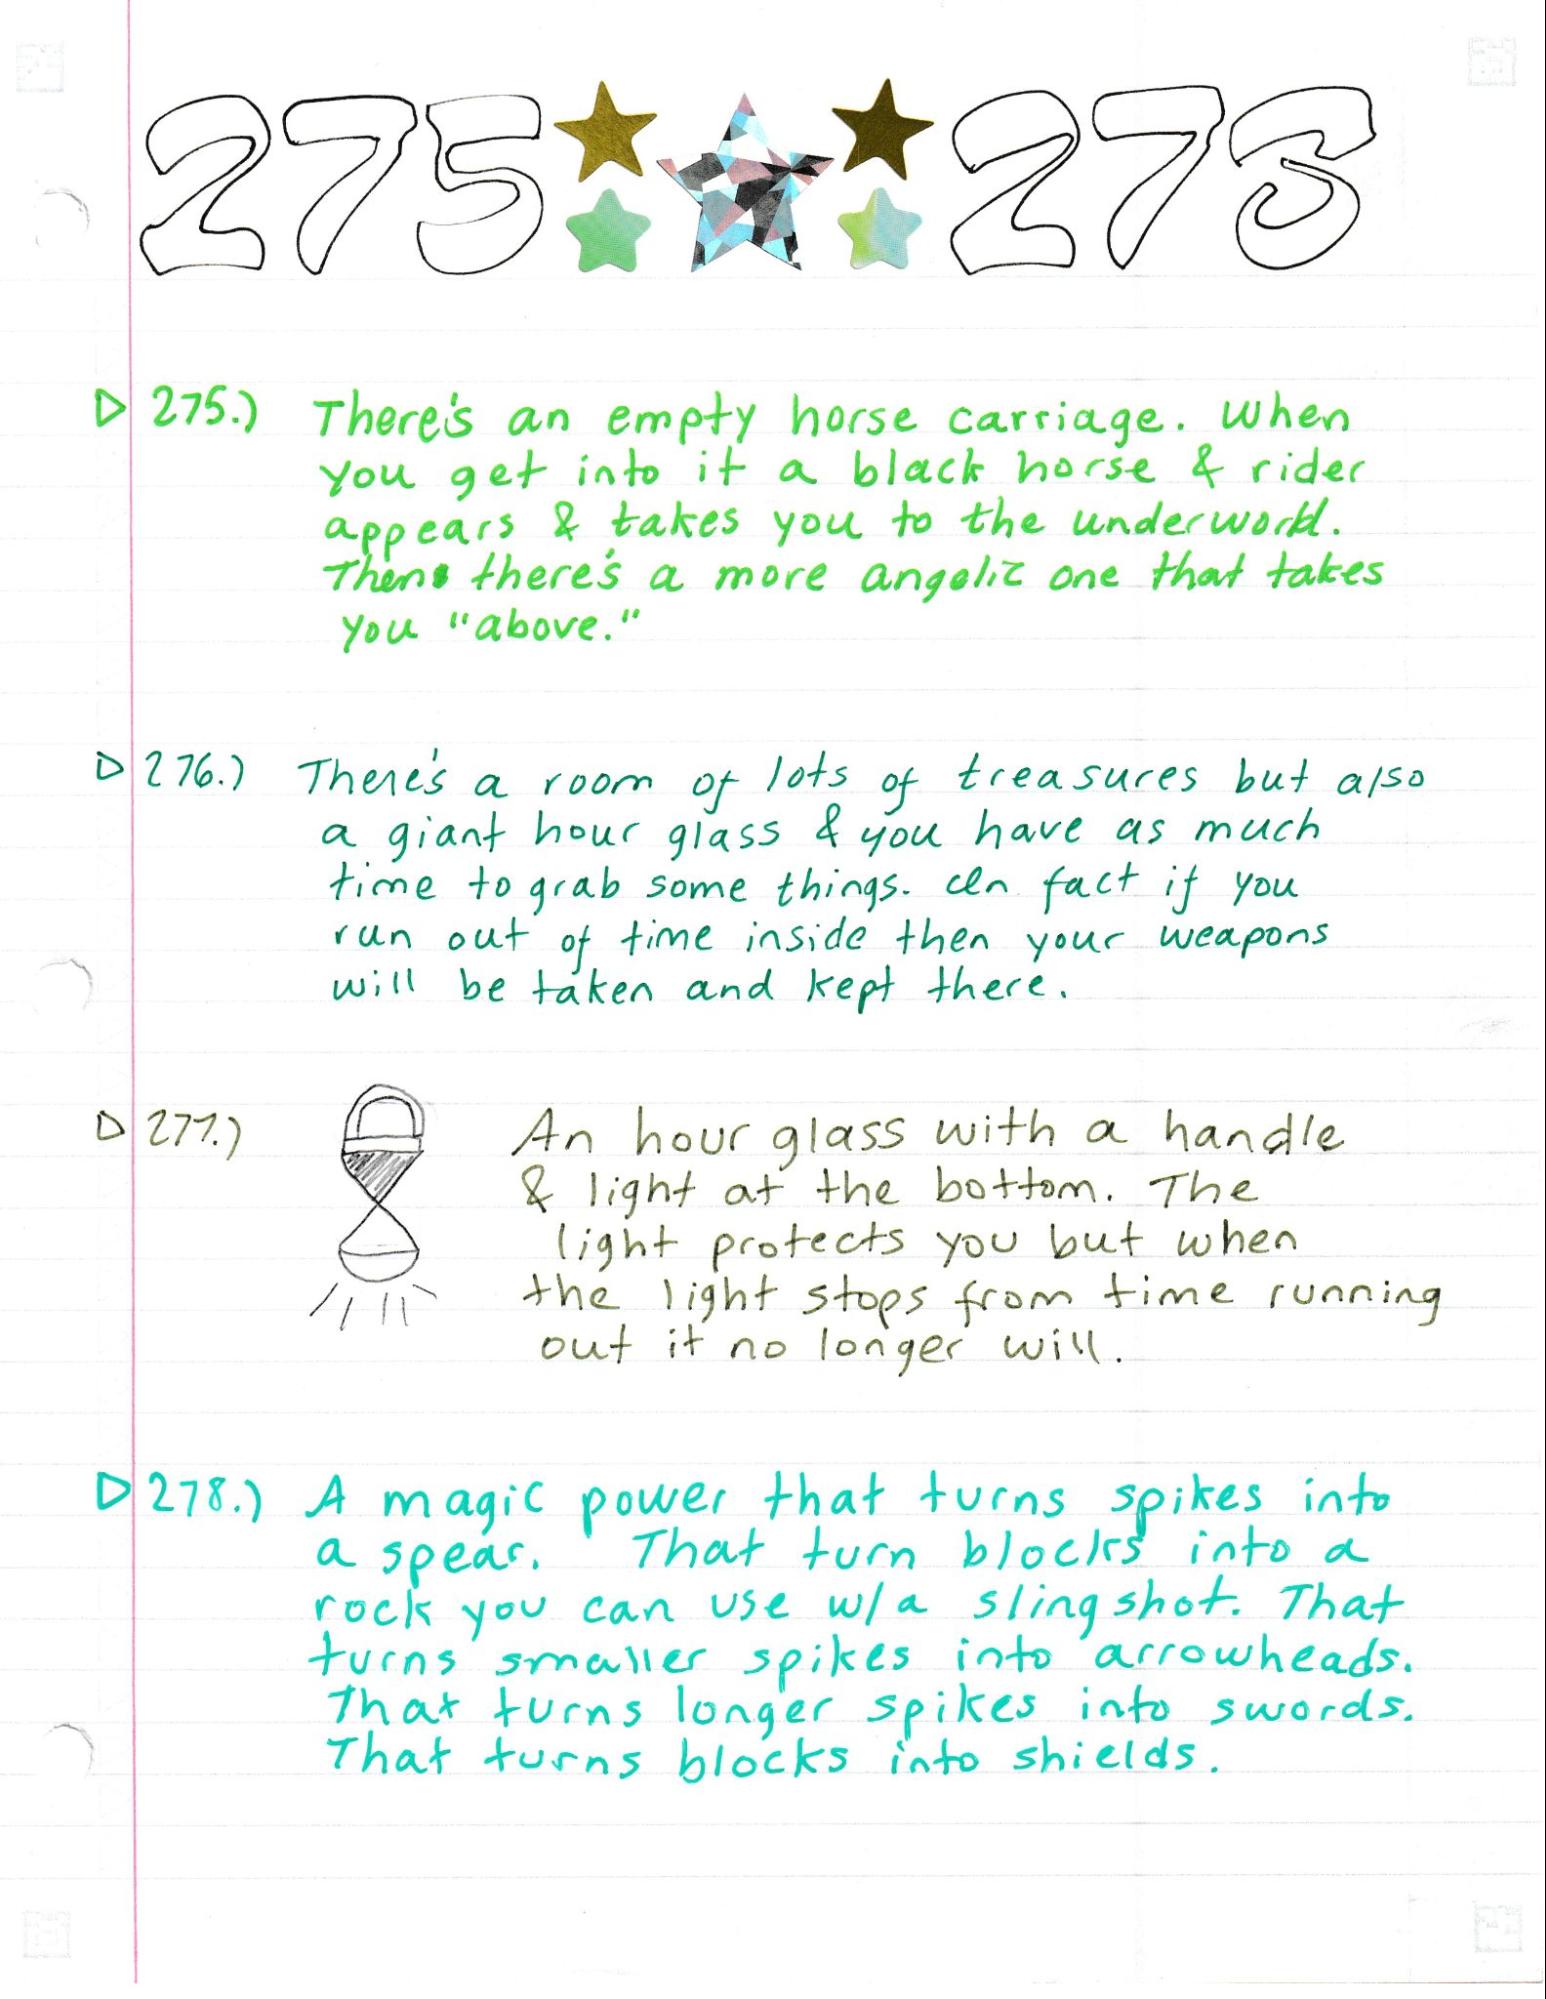 275 278
275.) There's an empty horse carriage. When
you get into it a black horse & rider
appears & takes you to the underworld.
Then there's a more angelic one that takes
you "above."
276.) There's a room of lots of treasures but also
a giant hour glass & you have as much
time to grab some things. In fact if you
run out of time inside then your weapons
will be taken and kept there.
277.) An hour glass with a handle
& light at the bottom. The
light protects you but when
the light stops from time running
out it no longer will.
278.) A magic power that turns spikes into
a spear. That turn blocks into a
rock you can use w/a slingshot. That
turns smaller spikes into arrowheads.
That turns longer spikes into swords.
That turns blocks into shields.